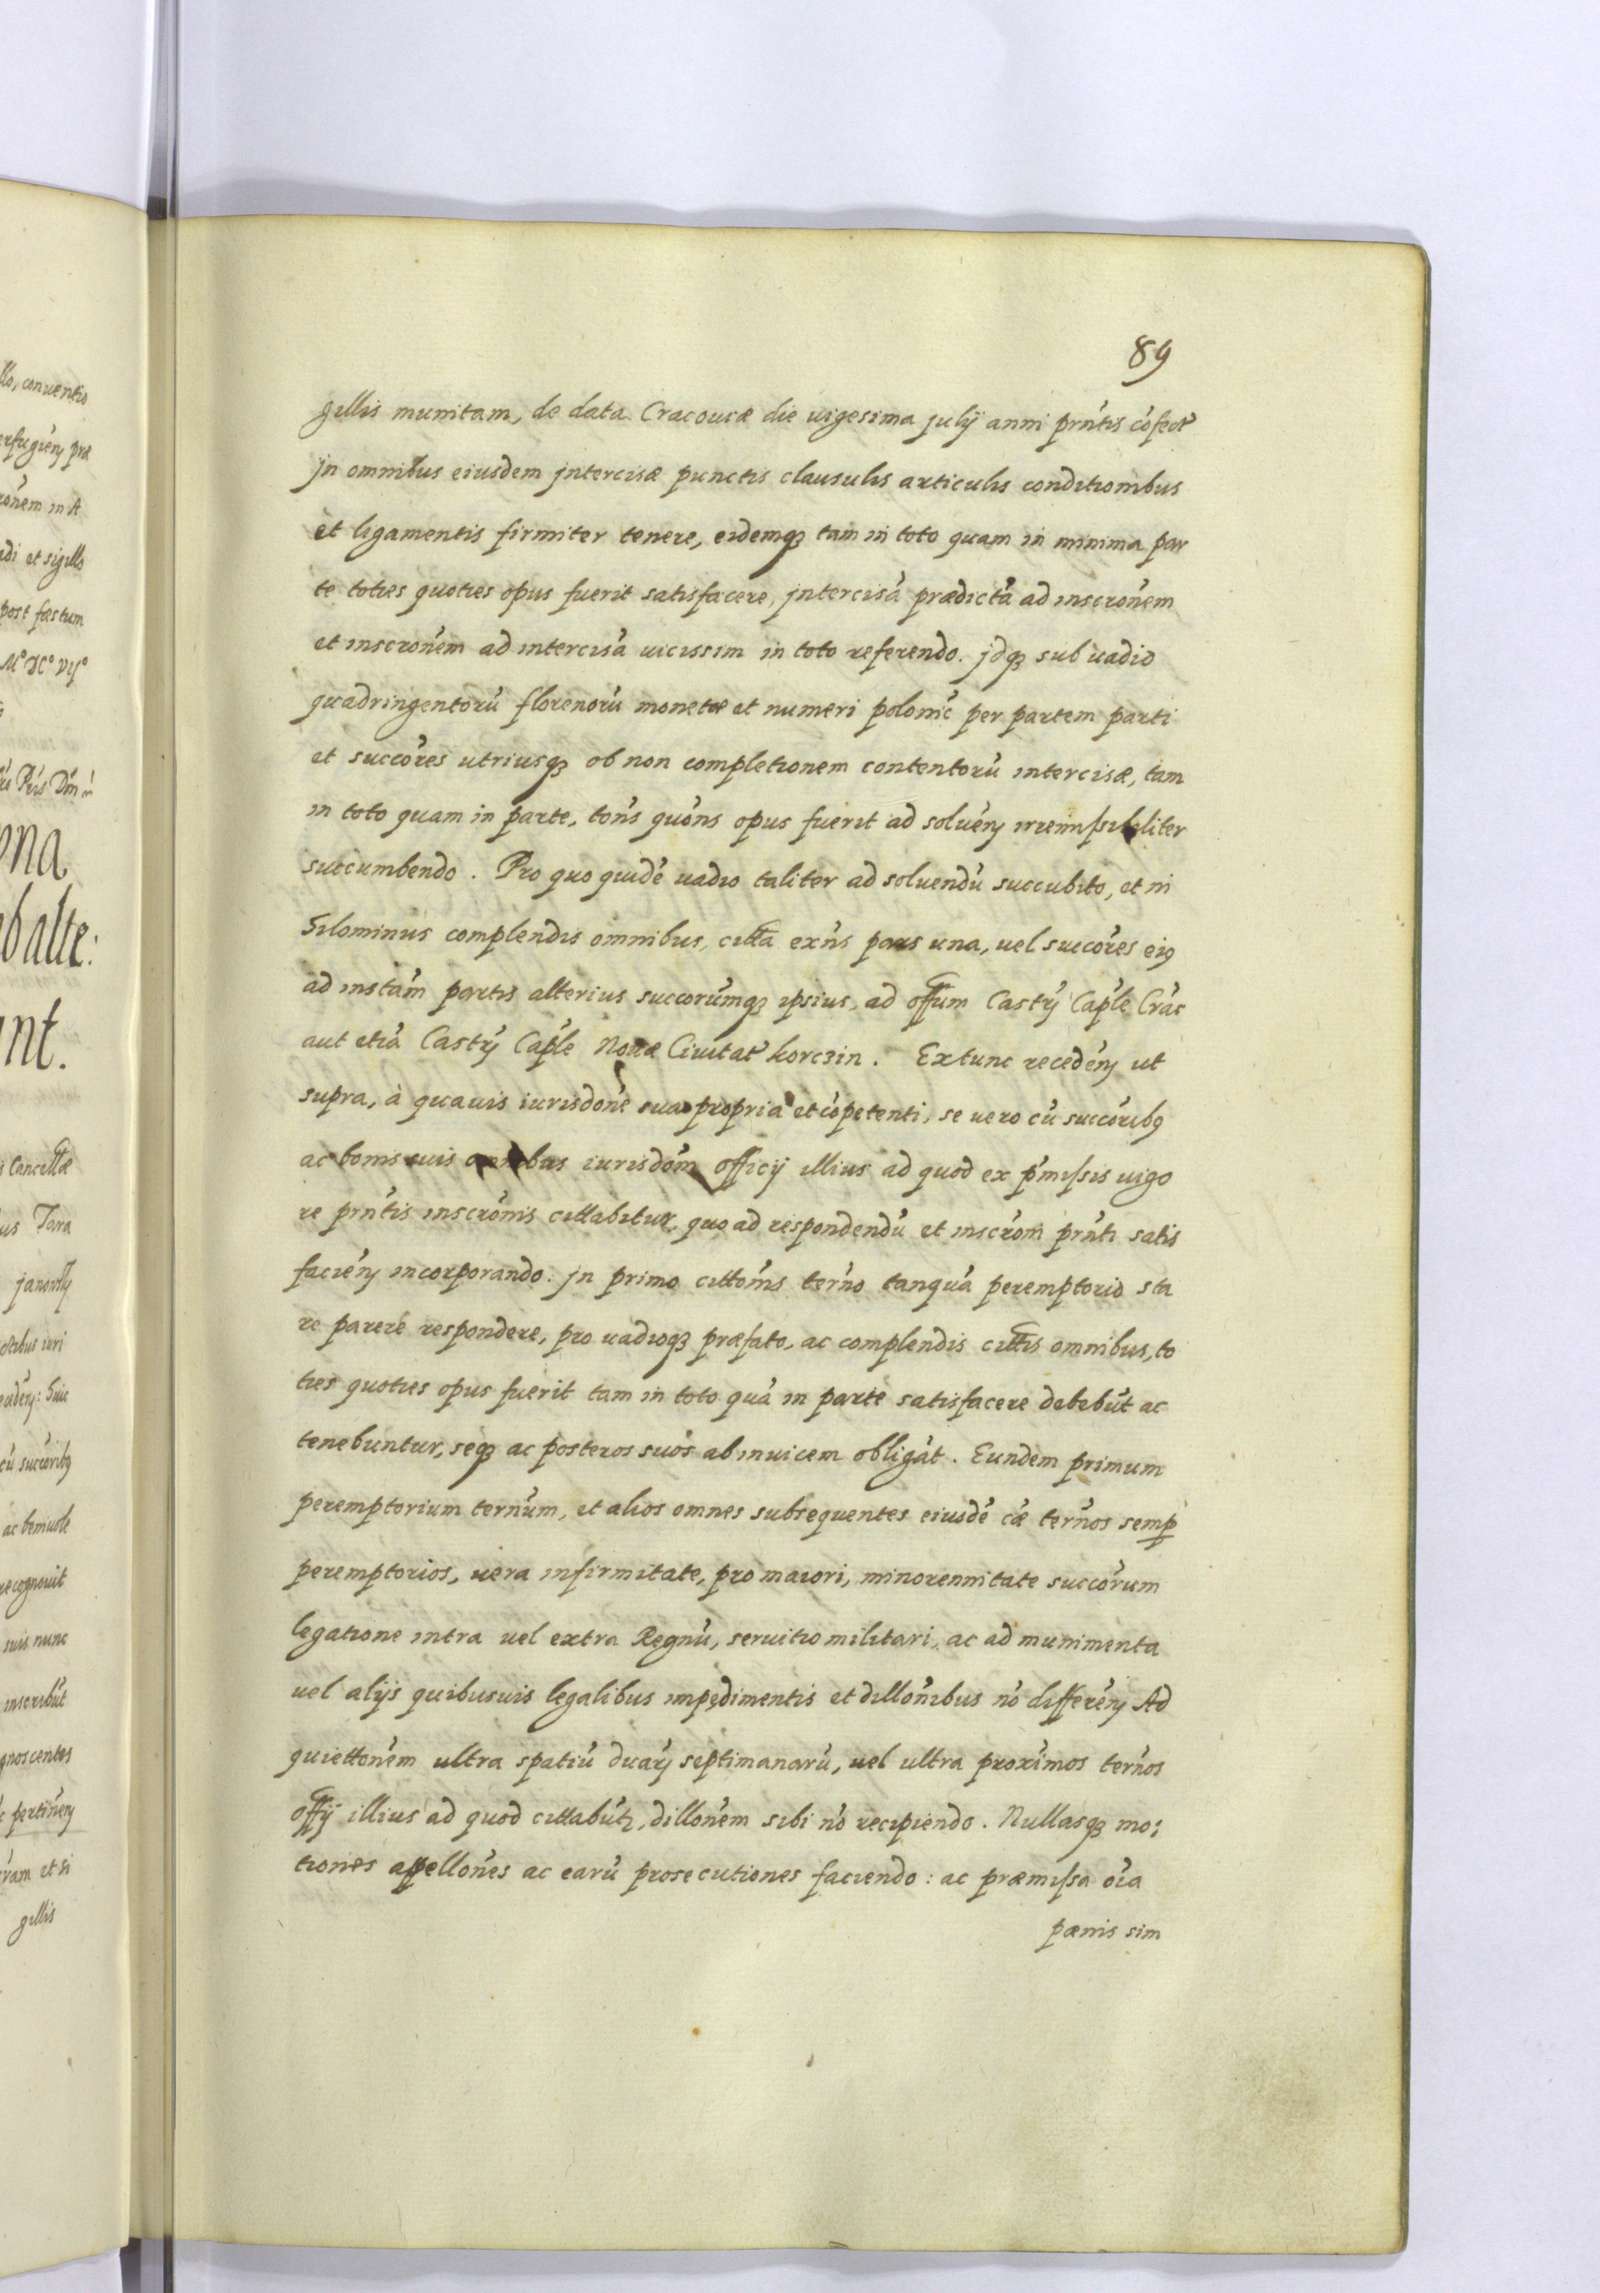 89
gillis munitam, de data Cracouiæ die uigesima julij anni prn̄tis cōfect
jn omnibus eiusdem jntercisæ punctis clausulis articulis conditionibus
et ligamentis firmiter tenere, eidemqꝫ tam in toto quam in minima par
te toties quoties opus fuerit satisfacere, jntercisā prædictā ad inscronēm
et inscronēm ad intercisā uicissim in toto referendo. jdqꝫ sub uadio
quadringentorū florenorū monetæ et numeri polonīc per partem parti
et succōres utriusqꝫ ob non completionem contentorū intercisæ, tam
in toto quam in parte, ton̄s quōns opus fuerit ad soluēn irremissibiliter
succumbendo. Pro quo quidē uadio taliter ad soluendū succubito, et ni
hilominus complendis omnibus, citta exn̄s pars una, uel succōres eiꝰ
ad instām partis alterius succorūmqꝫ ipsius, ad offum Castrj Caplē Crāc
aut etiā Castrj Caplē Nouæ Ciuitat Korczin. Extunc recedēn ut
supra, à quauis iurisdonē sua propria et cōpetenti, se uero cū succōribꝰ
ac bonis suis omnibus iurisdōm officij illius ad quod ex pmīssis uigo
re prn̄tis inscrōnis cittabitur, quo ad respondendū et inscrōm prn̄ti satis
faciēn incorporando. jn primo cittonīs ternō tanquā peremptorio sta
re parere respondere, pro uadioqꝫ præfato, ac complendis cittis omnibus, to
ties quoties opus fuerit tam in toto quā in parte satisfacere debebūt ac
tenebuntur, seqꝫ ac posteros suos ab inuicem obligāt. Eundem primum
peremptorium ternūm, et alios omnes subsequentes eiusdē cāe ternōs semp
peremptorios, uera infirmitate, pro maiori, minorennitate succōrum
legatione intra uel extra Regnū, seruitio militari, ac ad munimenta
uel alijs quibusuis legalibus impedimentis et dillonībus nō differēn Ad
quiettonēm ultra spatiū duarū septimanarū, uel ultra proximos ternōs
offij illius ad quod cittabūt, dillonēm sibi nō recipiendo. Nullasqꝫ mo:
tiones appellonēs ac earū prosecutiones faciendo: ac præmissa oīa
pænis sim